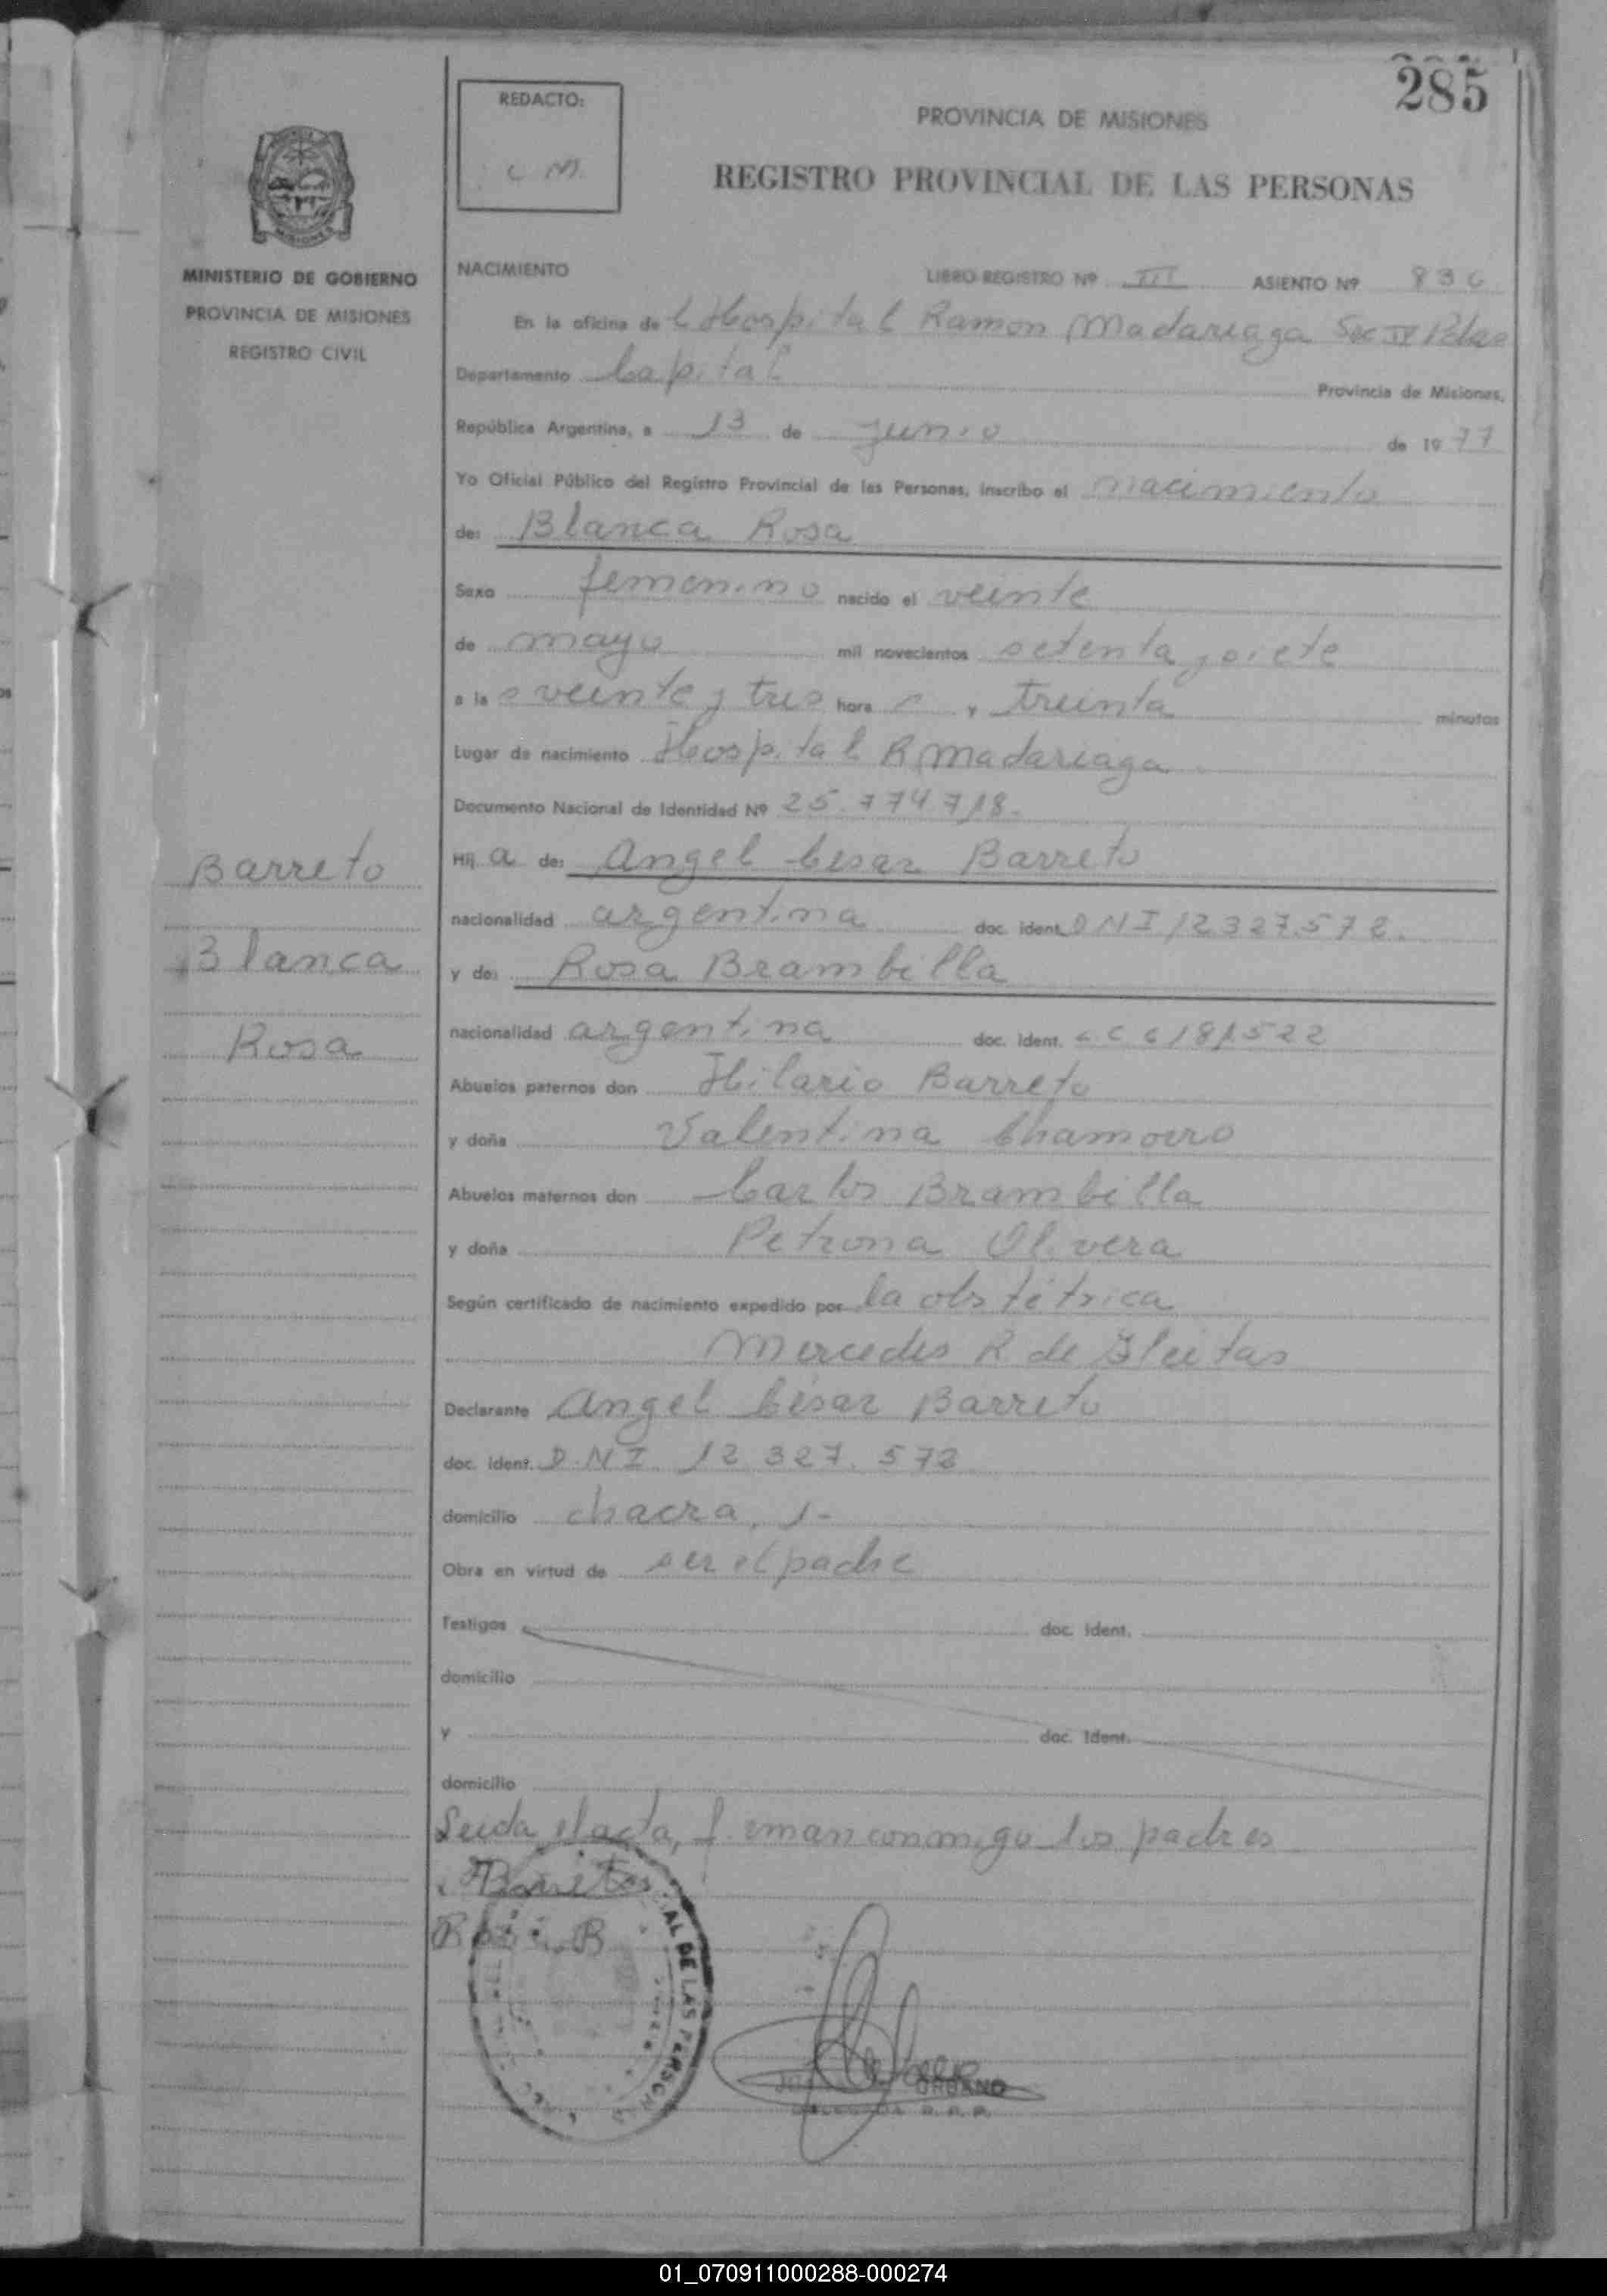 285
REDACTO:
C M.
PROVINCIA DE MISIONES
REGISTRO PROVINCIAL DE LAS PERSONAS
MISIONES
MINISTERIO DE GOBIERNO
PROVINCIA DE MISIONES
REGISTRO CIVIL
NACIMIENTO LIBRO REGISTRO Nº III ASIENTO Nº 836
En la oficina del Hospital Ramon Madariaga Sec IV Pdas
Departamento Capital Provincia de Misiones,
República Argentina, a 13 de junio de 1977
Yo Oficial Público del Registro Provincial de las Personas, inscribo el nacimiento
de: Blanca Rosa
Sexo femenino nacido el veinte
de mayo mil novecientos setenta y siete
a las veinte y tres horas y treinta minutos
Lugar de nacimiento Hospital R Madariaga
Documento Nacional de Identidad Nº 25.774718.
Hija de: Angel Cesar Barreto
nacionalidad argentina doc. ident. DNI 12327.572.
y de: Rosa Brambilla
nacionalidad argentina doc. ident. LC 6181522
Abuelos paternos don Hilario Barreto
y doña Valentina Chamorro
Abuelos maternos don Carlos Brambilla
y doña Petrona Olivera
Según certificado de nacimiento expedido por la obstétrica
Mercedes R de Gleitas
Declarante Angel César Barreto
doc. ident. D.N.I. 12 327. 572
domicilio chacra, 1-
Obra en virtud de ser el padre
Testigos doc. ident.
domicilio
y doc. ident.
domicilio
Leida el acta, firman conmigo los padres
Barreto
Rosa B
AL DE LAS PERSONAS
URBANO
DELEGADA R. P. P.
Barreto
Blanca
Rosa
01_070911000288-000274